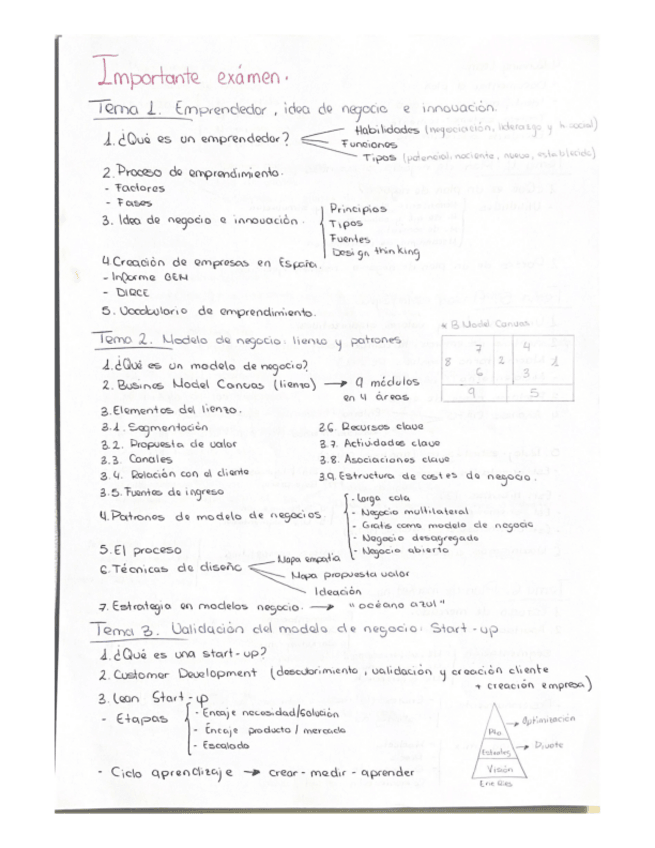 Importante exámen.
Tema 1. Emprendedor, idea de negocio e innovación.
1. ¿Qué es un emprendedor?
Habilidades (negociación, liderazgo y h. social)
Funciones
Tipos (potencial, naciente, nuevo, establecido)
2. Proceso de emprendimiento.
- Factores
- Fases
3. Idea de negocio e innovación.
Principios
Tipos
Fuentes
Design thinking
4. Creación de empresas en España.
- Informe GEM
- DIRCE
5. Vocabulario de emprendimiento.
Tema 2. Modelo de negocio: lienzo y patrones
* B. Model Canvas
7 4
8 2 1
6 3
9 5
1. ¿Qué es un modelo de negocio?
2. Busines Model Canvas (lienzo) → 9 módulos
en 4 áreas
3. Elementos del lienzo.
3.1. Segmentación
3.2. Propuesta de valor
3.3. Canales
3.4. Relación con el cliente
3.5. Fuentes de ingreso
3.6. Recursos clave
3.7. Actividades clave
3.8. Asociaciones clave
3.9. Estructura de costes de negocio.
4. Patrones de modelo de negocios.
- Larga cola
- Negocio multilateral
- Gratis como modelo de negocio
- Negocio desagregado
- Negocio abierto
5. El proceso
6. Técnicas de diseño
Mapa empatía
Mapa propuesta valor
Ideación
7. Estrategia en modelos negocio. → "océano azul"
Tema 3. Validación del modelo de negocio: Start-up
1. ¿Qué es una start-up?
2. Customer Development (descubrimiento, validación y creación cliente
+ creación empresa)
3. Lean Start-up
- Etapas
- Encaje necesidad/solución
- Encaje producto/mercado
- Escalado
- Ciclo aprendizaje → crear - medir - aprender
→ Optimización
Pto
Estrateg → Pivote
Visión